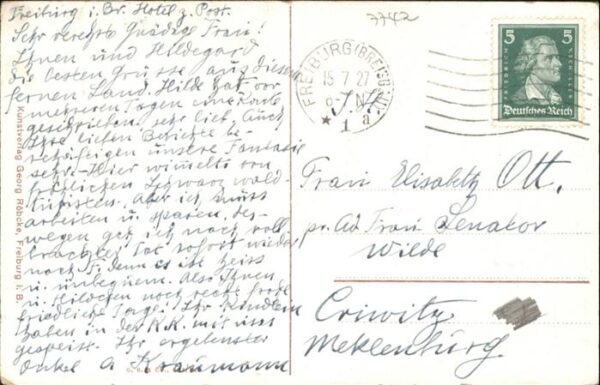 Freiburg i. Br. Hotel z. Post.
Sehr verehrte Gnädige Frau!
Ihnen und Hildegard
die besten Grüsse aus diesem
fernen Land. Hilde hat vor
mehreren Tagen eine Karte
geschrieben, sehr lieb. Auch
Ihre lieben Berichte be-
unsere Fantasie
sehr. Hier wimmelts von
fröhlichen Schwarzwald
touristen. Aber ich muss
arbeiten u. sparen, des-
wegen geh ich nach voll
brachter sofort wieder
nach denn es ist heiss
u. unbequem. Also Ihnen
u. Hildchen noch recht frohe
friedliche Tage! Ihr Kindlein
haben in der K.K. mit uns
gespeist. Ihr ergebenster
Onkel A Kraumann
7742
FREIBURG (BREISGAU)
15 7 27
N
* 1 a
5 5
Deutsches Reich
Frau Elisabeth Ott,
pr. Ad. Frau Senator
Wilde
Criwitz
Meklenburg
Kunstverlag Georg Röbcke, Freiburg i. B.